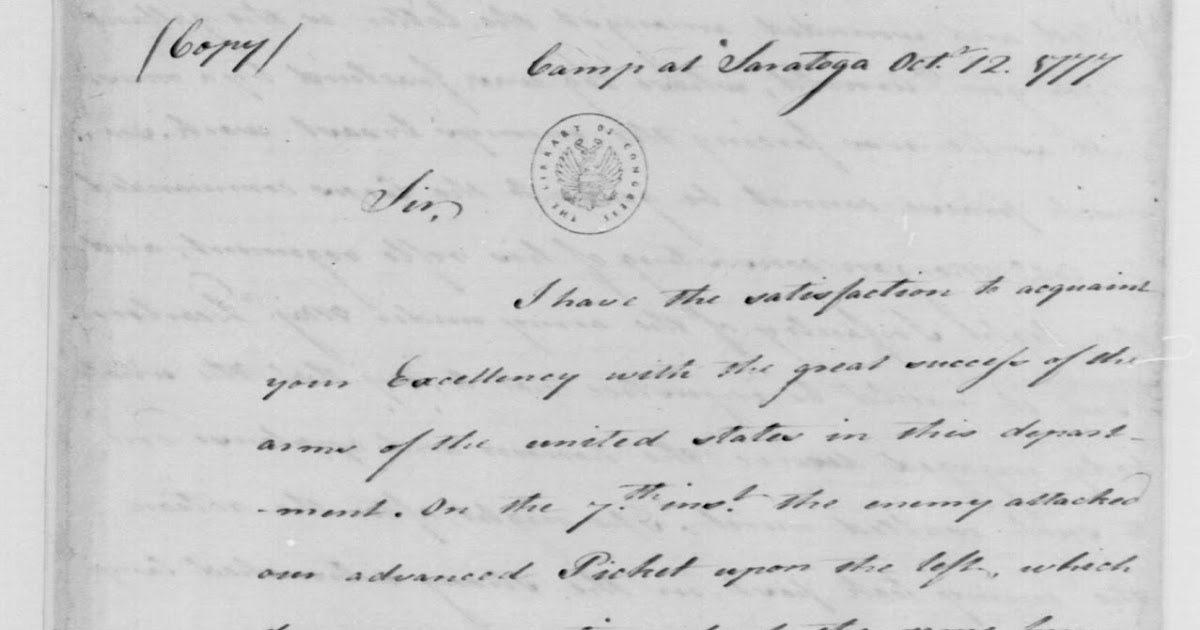 (Copy)
Camp at Saratoga Octr. 12. 1777
THE LIBRARY OF CONGRESS
Sir,
I have the satisfaction to acquaint
your Excellency with the great success of the
arms of the united states in this depart-
-ment. On the 7th. inst. the enemy attacked
our advanced Picket upon the left, which